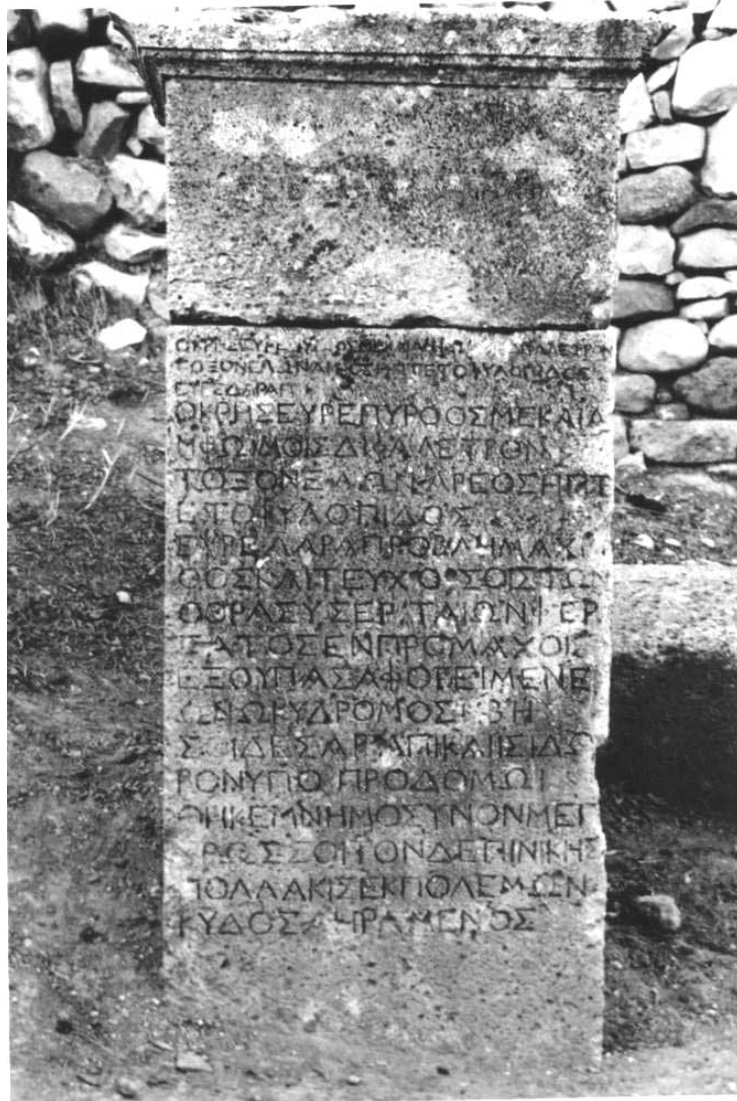 ΤΟΞΟΝΕΛΩΝΑΡΕΟΣΗΠΤΕΤΟΦΥΛΟΠΙΔΟΣ
ΕΥΡΕΔΑΡΑΠ
ΟΚΡΗΣΕΥΡΕΠΥΡΟΟΣΜΕΚΑΙΑ
ΜΦΩΜΟΙΣΔΙΦΑΛΕΤΡΟΝ
ΤΟΞΟΝΕΛΩΝΑΡΕΟΣΗΠΤ
ΕΤΟΦΥΛΟΠΙΔΟΣ
ΕΥΡΕΔΑΡΑΠΡΟΒΛΗΜΑΧ
ΘΟΣΚΑΙΤΕΥΧΟΣΟΙΣΤΩΝ
ΟΘΡΑΣΥΣΕΡΤΑΙΩΝΦΕΡ
ΤΑΤΟΣΕΝΠΡΟΜΑΧΟΙΣ
ΕΞΟΥΠΑΣΑΦΟΡΕΙΜΕΝΕ
ΩΝΩΚΥΔΡΟΜΟΣΗΒΗ
ΣΟΙΔΕΣΑΡΑΠΙΚΑΙΙΣΙΔΩ
ΡΟΝΥΠΟΠΡΟΔΟΜΩΙ
ΘΗΚΕΜΝΗΜΟΣΥΝΟΝΜΕΓ
ΠΟΛΛΑΚΙΣΕΚΠΟΛΕΜΩΝ
ΚΥΔΟΣΑΗΡΑΜΕΝΟΣ